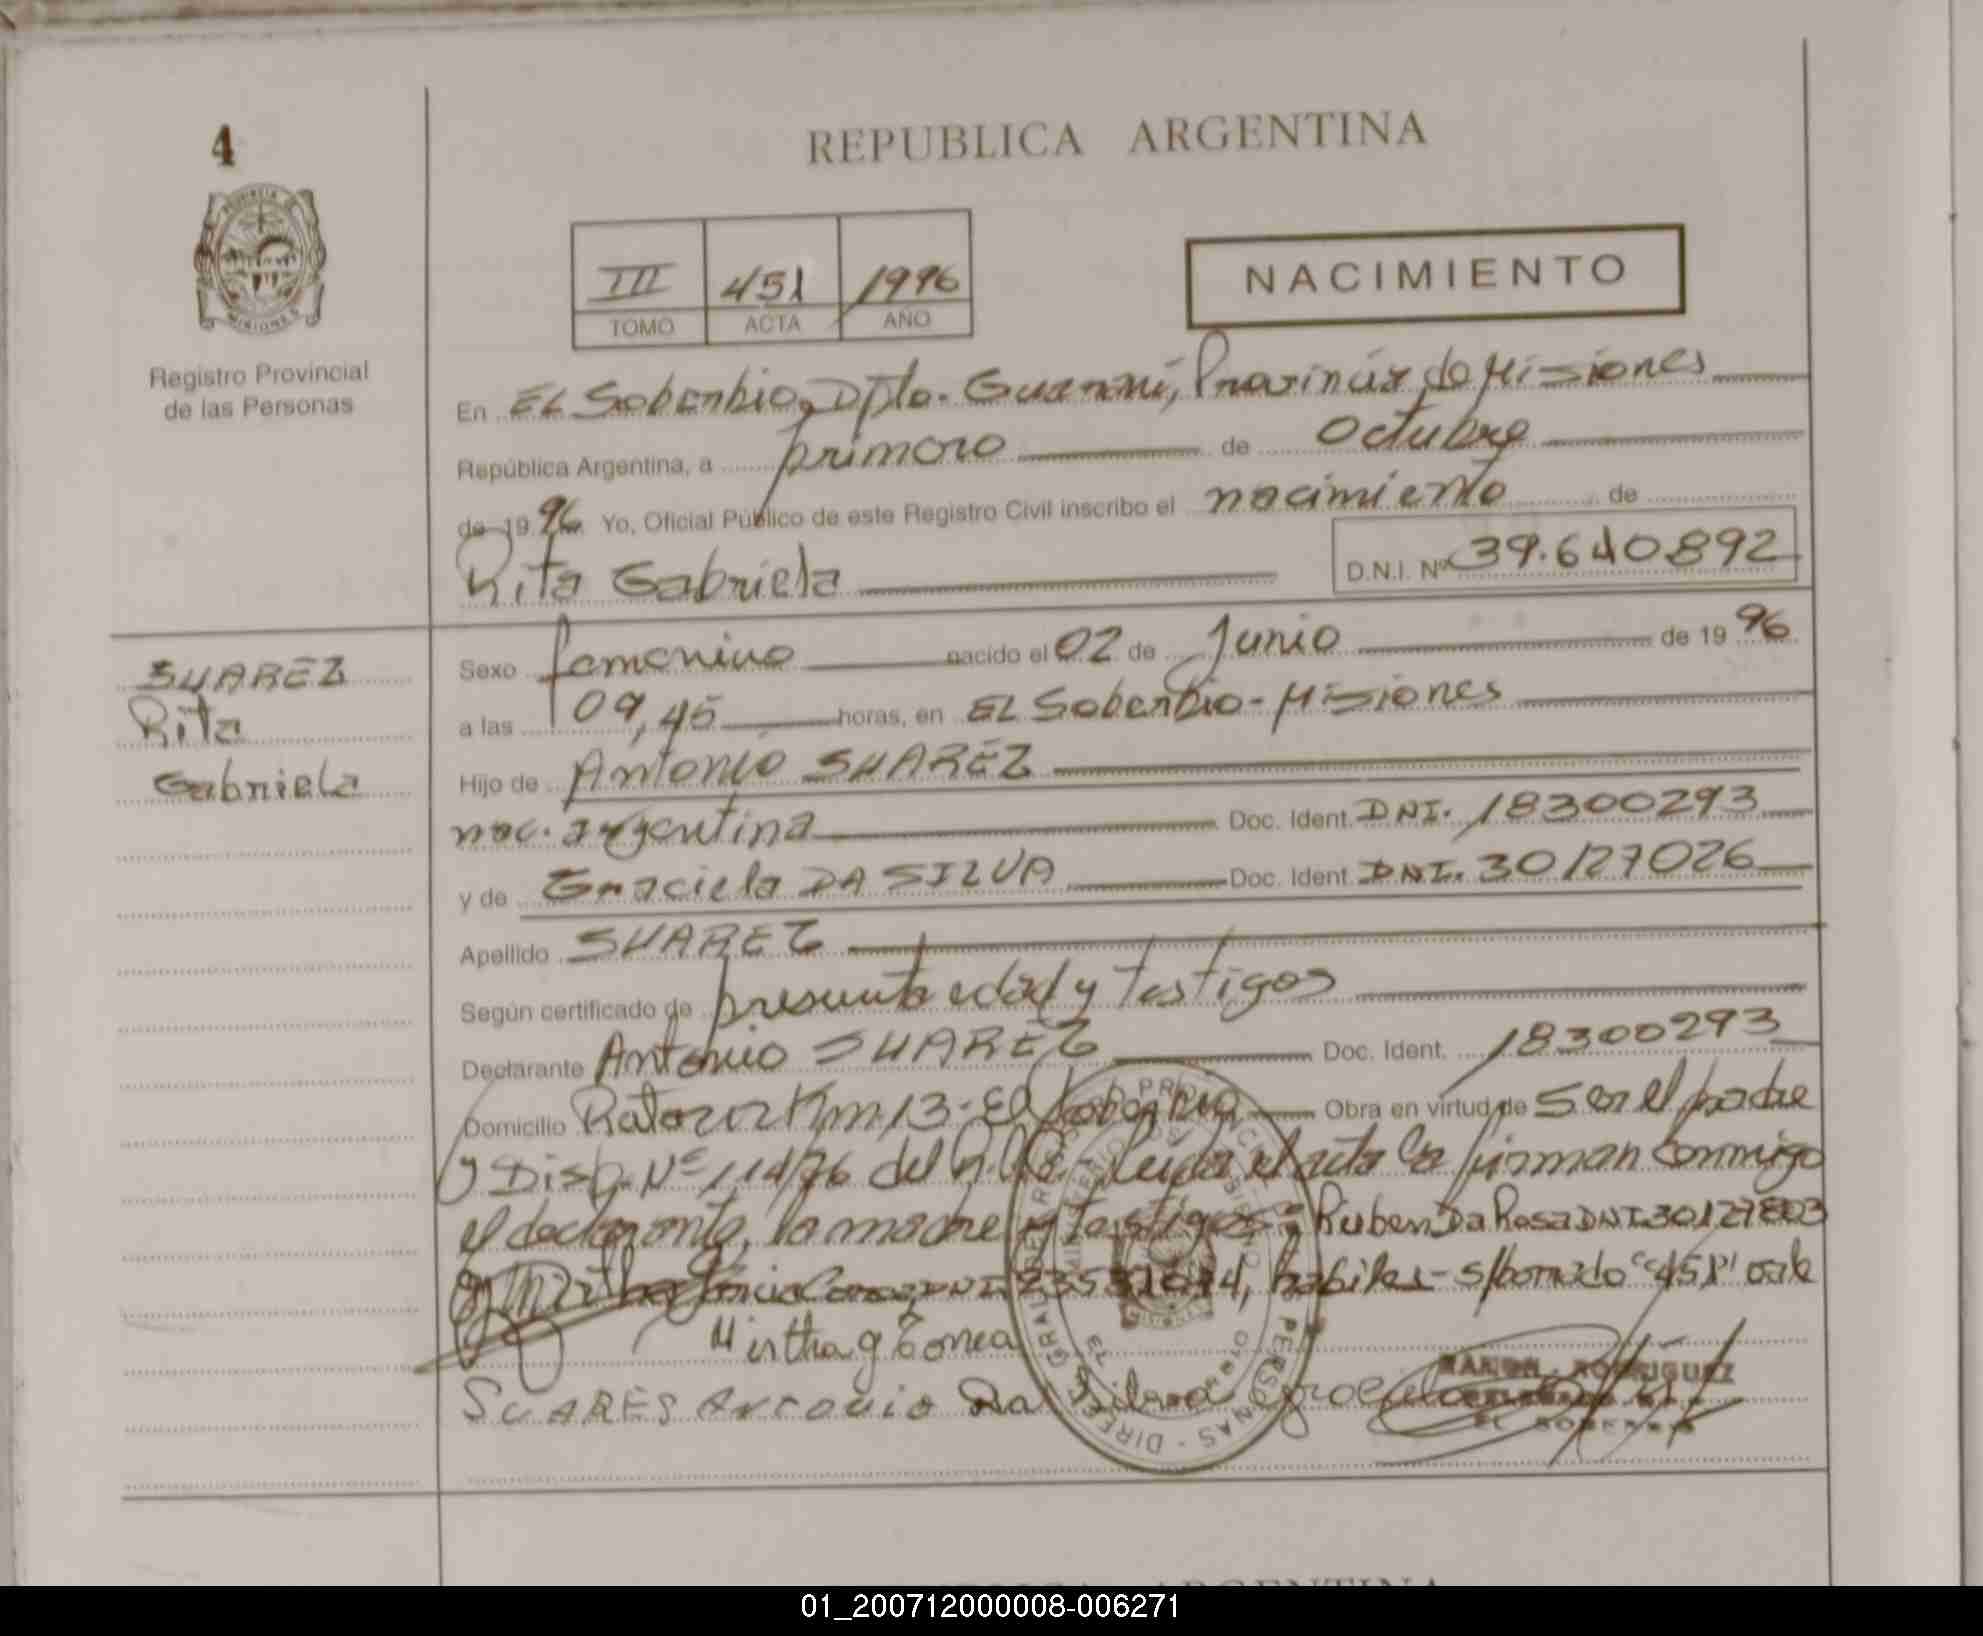 4
REPUBLICA ARGENTINA
PROVINCIA DE
MISIONES
III 451 1996
TOMO ACTA AÑO
NACIMIENTO
Registro Provincial
de las Personas
En EL Soberbio, Dpto. Guaraní, Provincia de Misiones
República Argentina, a primero de Octubre
de 19 96 Yo, Oficial Público de este Registro Civil inscribo el nacimiento de
Rita Gabriela D.N.I. Nº 39.640.892
SUAREZ
Rita
Gabriela
Sexo femenino nacido el 02 de Junio de 19 96
a las 09,45 horas, en EL Soberbio - Misiones
Hijo de Antonio SUAREZ
nac. argentina Doc. Ident. DNI. 18300293
y de Graciela DA SILVA Doc. Ident. DNI. 30127026
Apellido SUAREZ
Según certificado de presunta edad y testigos
Declarante Antonio SUAREZ Doc. Ident. 18300293
Domicilio Km 13 - El Soberbio Obra en virtud de Ser el padre
y Disp. Nº 114/96 del leída el acta la firman conmigo
el declarante, la madre y testigos: Ruben Da Rosa DNI 30127803
habiles - s/borrado "451" vale
Mirtha g Correa
SUARES Antonio Da Silva
RAMON RODRIGUEZ
EL SOBERBIO
ARGENTINA
01_200712000008-006271